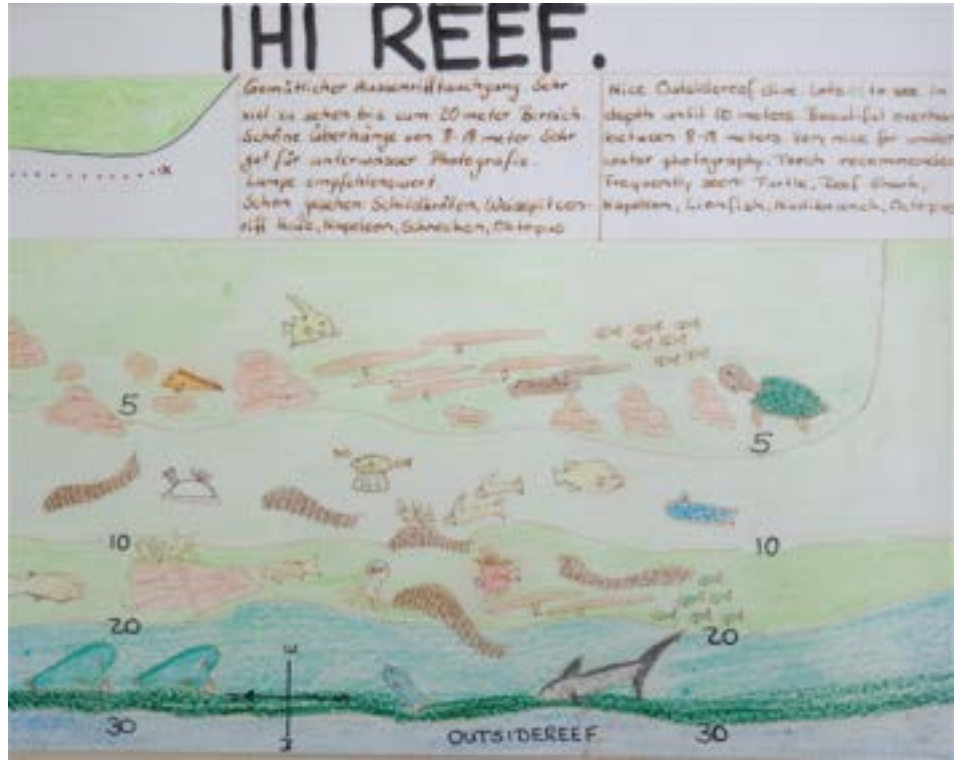 IHI REEF.
Gemütlicher Aussenrifftauchgang Sehr
viel zu sehen bis zum 20 meter Bereich
Schöne überhänge von 8-18 meter Sehr
gut für unterwasser Photografie.
Lampe empfehlenswert.
Schon gesehen: Schildkröten, Weisspitzen-
riff haie, Napoleon, Schnecken, Octopus
Nice Outsidereef dive Lots to see in
depth until 20 meters. Beautiful overhan
between 8-18 meters very nice for under
water photography. Torch recommended
Frequently seen: Turtle, Reef Shark,
Napoleon, Lionfish, Nudibranch, Octopus
5
5
10
10
20
20
30
OUTSIDEREEF
30